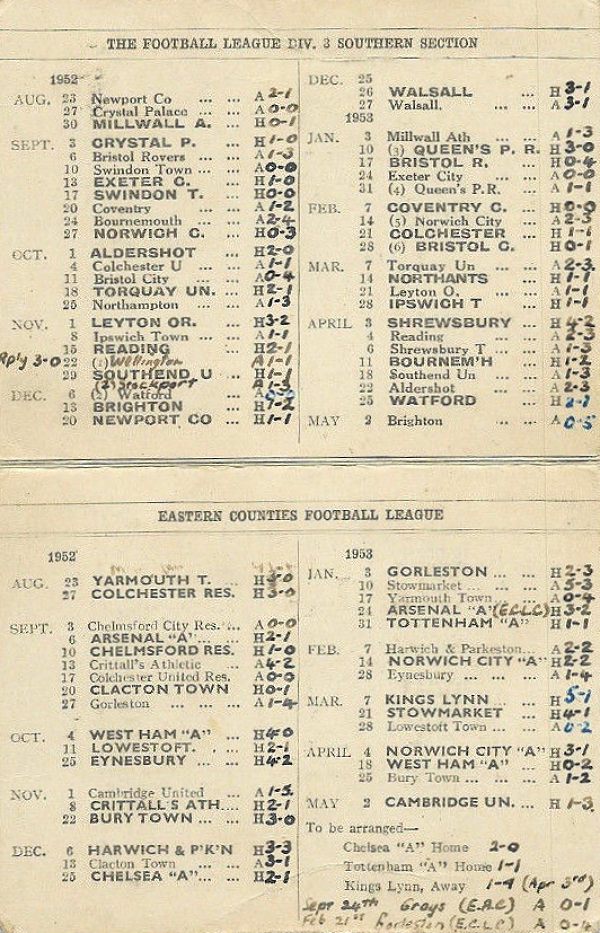 THE FOOTBALL LEAGUE DIV. 3 SOUTHERN SECTION
1952
AUG. 23 Newport Co ... ... A 2-1
27 Crystal Palace ... ... A 0-0
30 MILLWALL A. ... H 0-1
SEPT. 3 CRYSTAL P. ... H 1-0
6 Bristol Rovers ... ... A 1-3
10 Swindon Town ... ... A 0-0
13 EXETER C. ... H 1-0
17 SWINDON T. ... H 0-0
20 Coventry ... ... A 1-2
24 Bournemouth ... ... A 2-4
27 NORWICH C. ... H 0-3
OCT. 1 ALDERSHOT ... H 2-0
4 Colchester U ... ... A 1-1
11 Bristol City ... ... A 0-4
18 TORQUAY UN. ... H 2-1
25 Northampton ... ... A 1-3
NOV. 1 LEYTON OR. ... H 3-2
8 Ipswich Town ... ... A 1-1
15 READING ... H 2-1
Rply 3-0 22 (1) Wellington A 1-1
29 SOUTHEND U ... H 1-1
(2) Stockport A 1-3
DEC. 6 (2) Watford ... A
13 BRIGHTON ... H
20 NEWPORT CO ... H 1-1
DEC. 25
26 WALSALL ... H 3-1
27 Walsall. ... ... A 3-1
1953
JAN. 3 Millwall Ath ... ... A 1-3
10 (3) QUEEN'S P. R. H 3-0
17 BRISTOL R. ... H 0-4
24 Exeter City ... ... A 0-0
31 (4) Queen's P.R. ... A 1-1
FEB. 7 COVENTRY C. ... H 0-0
14 (5) Norwich City ... A 2-3
21 COLCHESTER ... H 1-1
28 (6) BRISTOL C. H 0-1
MAR. 7 Torquay Un ... ... A 2-3.
14 NORTHANTS ... H 1-1
21 Leyton O. ... ... A 1-1
28 IPSWICH T ... H 1-1
APRIL 3 SHREWSBURY ... H 4-2
4 Reading ... ... A 2-3
6 Shrewsbury T ... ... A 1-3
11 BOURNEM'H ... H 1-2
18 Southend Un ... ... A 1-3
22 Aldershot ... ... A 2-3
25 WATFORD ... H
MAY 2 Brighton ... ... A 0-5
EASTERN COUNTIES FOOTBALL LEAGUE
1952
AUG. 23 YARMOUTH T. ... H
27 COLCHESTER RES. H 3-0
SEPT. 3 Chelmsford City Res. ... A 0-0
6 ARSENAL "A" ... H 2-1
10 CHELMSFORD RES. H 1-0
13 Crittall's Athletic ... A 4-2
17 Colchester United Res. A 0-0
20 CLACTON TOWN H 0-1
27 Gorleston ... ... A 1-4
OCT. 4 WEST HAM "A" ... H 4-0
11 LOWESTOFT. ... H 2-1
25 EYNESBURY ... ... H 4-2
NOV. 1 Cambridge United ... A 1-5.
8 CRITTALL'S ATH.... H 2-1
22 BURY TOWN ... ... H 3-0
DEC. 6 HARWICH & P'K'N H 3-3
13 Clacton Town ... A 3-1
25 CHELSEA "A"... ... H 2-1
1953
JAN. 3 GORLESTON ... ... H 2-3
10 Stowmarket ... ... A 5-3
17 Yarmouth Town... ... A 0-4
24 ARSENAL "A" (E.C.L.C) H 3-2
31 TOTTENHAM "A" H 1-1
FEB. 7 Harwich & Parkeston... A 2-2
14 NORWICH CITY "A" H 2-2
28 Eynesbury ... ... A 1-4
MAR. 7 KINGS LYNN ... H 5-1
21 STOWMARKET ... H 4-1
28 Lowestoft Town ... ... A 0-2
APRIL 4 NORWICH CITY "A" H 3-1
18 WEST HAM "A" ... H 0-2
25 Bury Town ... ... A 1-2
MAY 2 CAMBRIDGE UN. ... H 1-3.
To be arranged—
Chelsea "A" Home 2-0
Tottenham "A" Home 1-1
Kings Lynn, Away 1-4 (Apr 3rd)
Sept 24th Grays (E.A.C) A 0-1
Feb 21st Gorleston (E.C.L.C) A 0-4